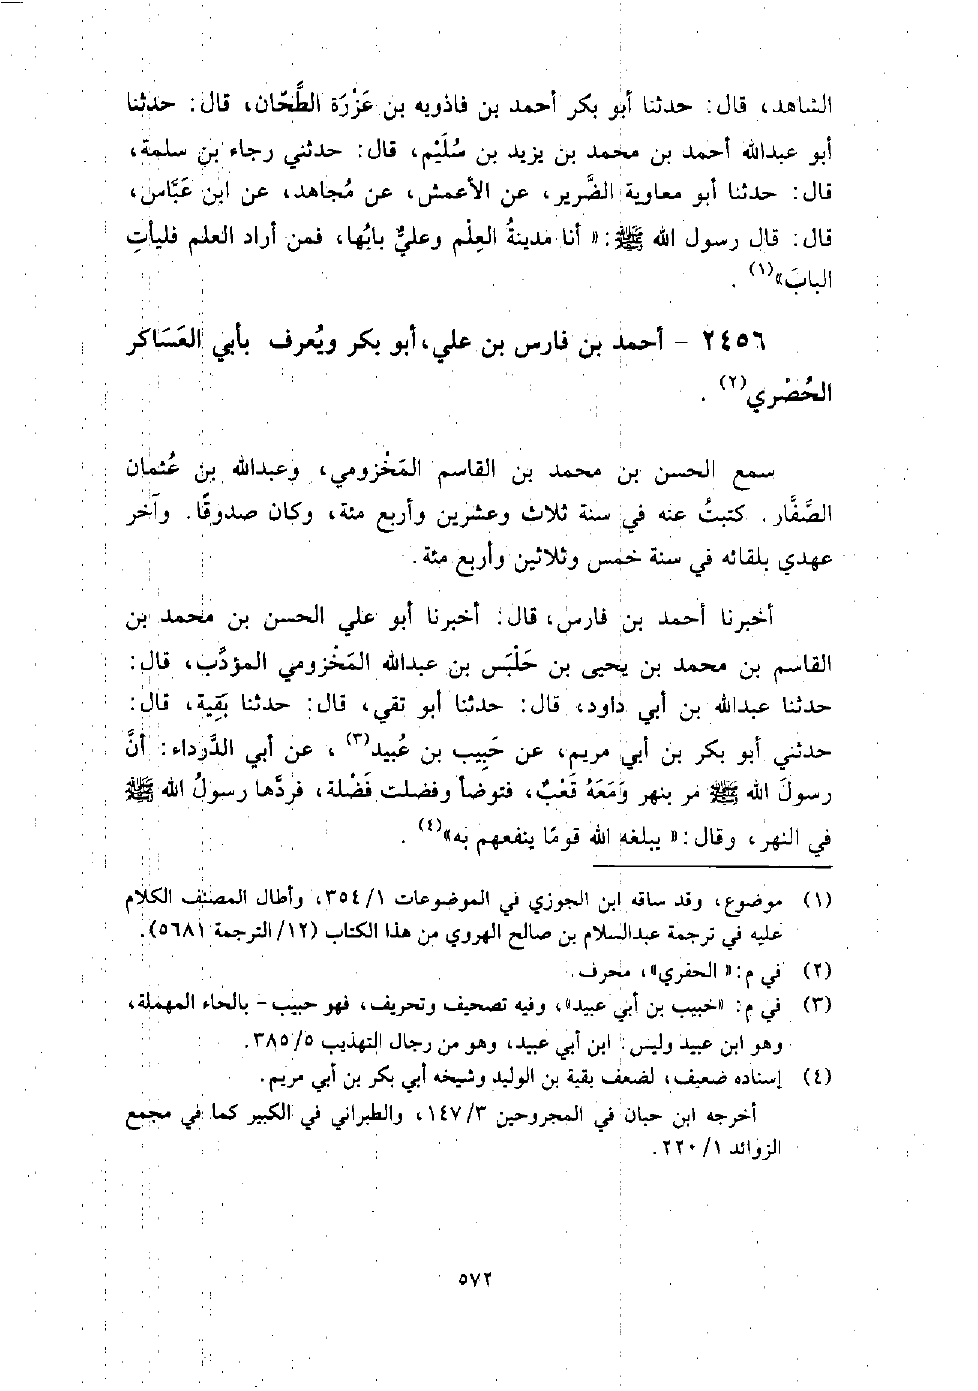 الشاهد، قال: حدثنا أبو بكر أحمد بن فاذويه بن عَزْرَة الطَّحّان، قال: حدثنا
أبو عبدالله أحمد بن محمد بن يزيد بن سُلَيْم، قال: حدثني رجاء بن سلمة،
قال: حدثنا أبو معاوية الضَّرير، عن الأعمش، عن مُجاهد، عن ابن عَبَّاس،
قال: قال رسول الله ﷺ: «أنا مدينةُ العِلْم وعليٌّ بابُها، فمن أراد العلم فليأتِ
البابَ»(١) .
٢٤٥٦ - أحمد بن فارس بن علي، أبو بكر ويُعرف بأبي العَسَاكر
الحُصْري(٢) .
سمع الحسن بن محمد بن القاسم المَخْزومي، وعبدالله بن عُثمان
الصَّفَّار. كتبتُ عنه في سنة ثلاث وعشرين وأربع مئة، وكان صدوقًا. وآخر
عهدي بلقائه في سنة خمس وثلاثين وأربع مئة.
أخبرنا أحمد بن فارس، قال: أخبرنا أبو علي الحسن بن محمد بن
القاسم بن محمد بن يحيى بن حَلْبَس بن عبدالله المَخْزومي المؤدَّب، قال:
حدثنا عبدالله بن أبي داود، قال: حدثنا أبو تقي، قال: حدثنا بَقِية، قال:
حدثني أبو بكر بن أبي مريم، عن حَبِيب بن عُبيد(٣) ، عن أبي الدَّرداء: أنَّ
رسولَ الله ﷺ مر بنهر وَمَعَهُ قَعْبٌ، فتوضأ وفضلت فَضْلة، فردَّها رسولُ الله ﷺ
في النهر، وقال: «يبلغه الله قومًا ينفعهم به»(٤) .
(١) موضوع، وقد ساقه ابن الجوزي في الموضوعات ١/ ٣٥٤، وأطال المصنف الكلام
عليه في ترجمة عبدالسلام بن صالح الهروي من هذا الكتاب (١٢/ الترجمة ٥٦٨١).
(٢) في م: «الحفري»، محرف.
(٣) في م: «خبيب بن أبي عبيد»، وفيه تصحيف وتحريف، فهو حبيب - بالحاء المهملة،
وهو ابن عبيد وليس: ابن أبي عبيد، وهو من رجال التهذيب ٥/ ٣٨٥.
(٤) إسناده ضعيف، لضعف بقية بن الوليد وشيخه أبي بكر بن أبي مريم.
أخرجه ابن حبان في المجروحين ٣/ ١٤٧، والطبراني في الكبير كما في مجمع
الزوائد ١/ ٢٢٠.
٥٧٢